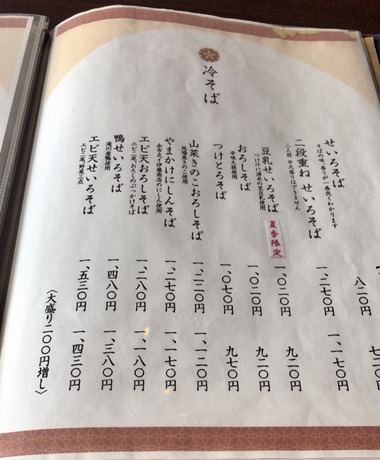 冷そば
せいろそば 八二〇 七二〇
そばの味、香りが一番良くわかります
二段重ねせいろそば 一、二七〇円 一、一七〇円
二人前 ※大盛りはできません
豆乳せいろそば 夏季限定 一、〇二〇円 九二〇円
おろしそば 一、〇二〇円 九二〇円
辛味大根使用
つけとろそば 一、〇七〇円 九七〇円
山菜きのこおろしそば 一、二二〇円 一、一二〇円
地場産きのこ使用
やまかけにしんそば 一、二七〇円 一、一七〇円
エビ天おろしそば 一、二八〇円 一、一八〇円
エビ二尾、おろしのぶっかけそば
鴨せいろそば 一、四八〇円 一、三八〇円
滝川産鴨使用
エビ天せいろそば 一、五三〇円 一、四三〇円
エビ二尾、野菜三点
(大盛り二〇〇円増し)